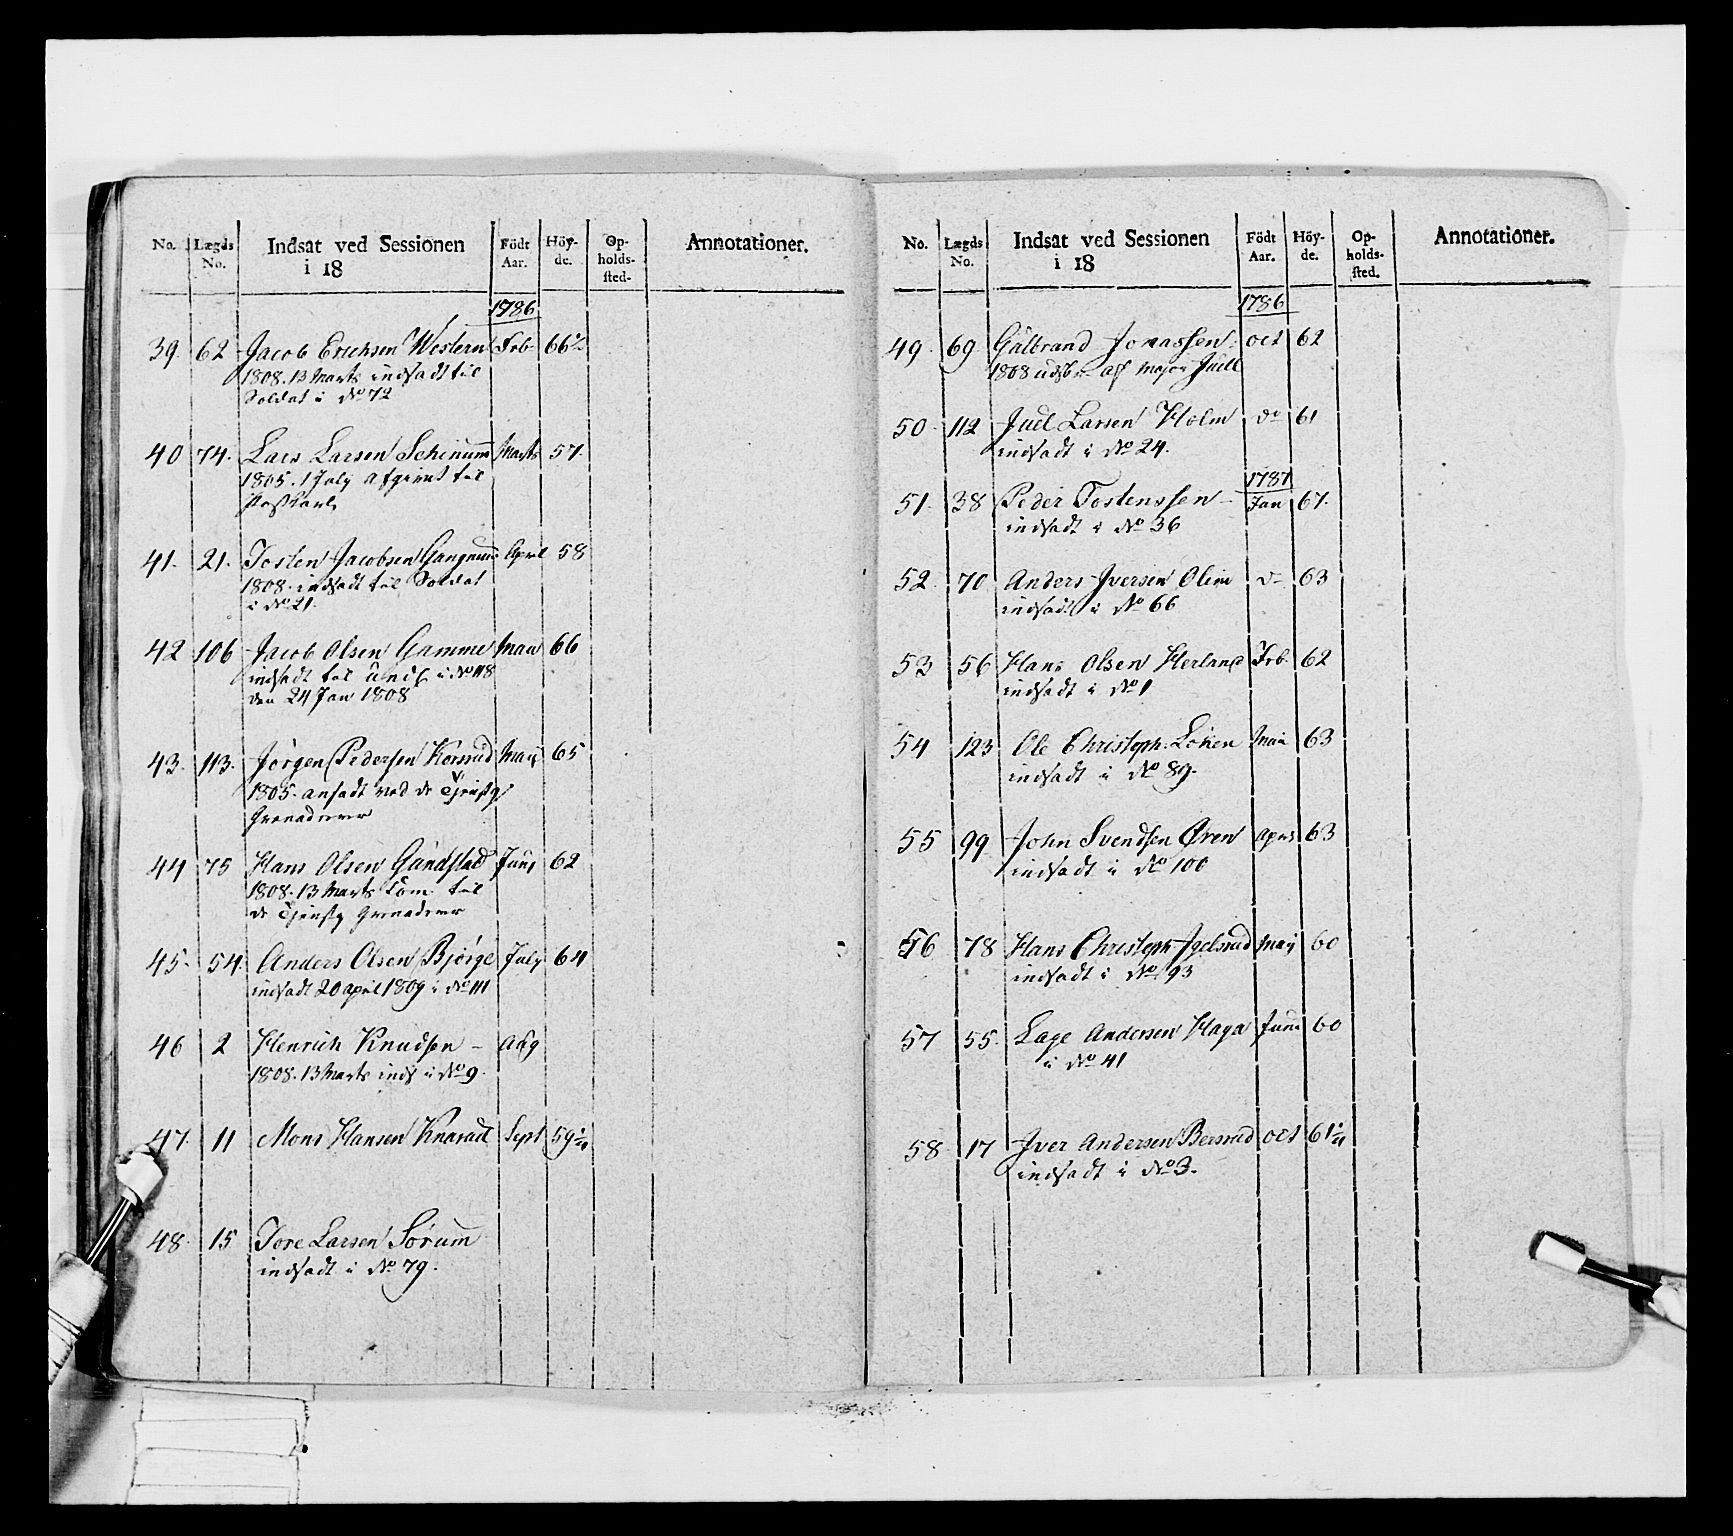 No. Lægds No. Indsat ved Sessionen i 18 Födt Aar. Höy-de. Op-holds-sted. Annotationer.
1786
39 62 Jacob Erichsen Western Feb 66½
1808. 13 Marts indsadt til
Soldat i No 72
40 74. Lars Larsen Schinum Marts 57.
1805. 1 July afgivet til
41. 21. Tosten Jacobsen April 58
1808. indsadt til Soldat
i No 21.
42 106 Jacob Olsen Gamme Maii 66
indsadt til i No 118
den 24 Jan 1808
43. 113. Jörgen Pedersen Korsrud Maij 65
1805. ansadt ved de
Grenaderer
44 75 Hans Olsen Gundstad Junj 62
1808. 13 Marts kom til
de Grenaderer
45. 54. Anders Olsen Bjørge July 64
indsadt 20 april 1809 i No 111
46 2 Henrich Knudsen – Aug
1808. 13 Marts inds i No 9.
47. 11 Mons Hansen Sept 59¼
48. 15 Tore Larsen Sörum
indsadt i No 79.
No. Lægds No. Indsat ved Sessionen i 18 Födt Aar. Höy-de. Op-holds-sted. Annotationer.
1786
49. 69 Gulbrand Jonassen. oct 62
1808 af Major Juell
50. 112 Juel Larsen Holm do 61
indsadt i No 24.
1787
51. 38 Peder Tostenssen – Jan 67.
indsadt i No 36
52. 70 Anders Iversen Olim do 63
indsadt i No 66
53 56 Hans Olsen Herland Feb. 62
indsadt i No 1
54 123 Ole Christoph: Löken Maii 63
indsadt i No 89.
55 99 John Svendsen Øren 63
indsadt i No 100
56 78 Hans Christoph Maij 60
indsadt i No 93
57 55. Lage Andersen Haga Juni 60
i No 41
58 17 Iver Andersen Bersrud oct 61¼
indsadt i No 3.